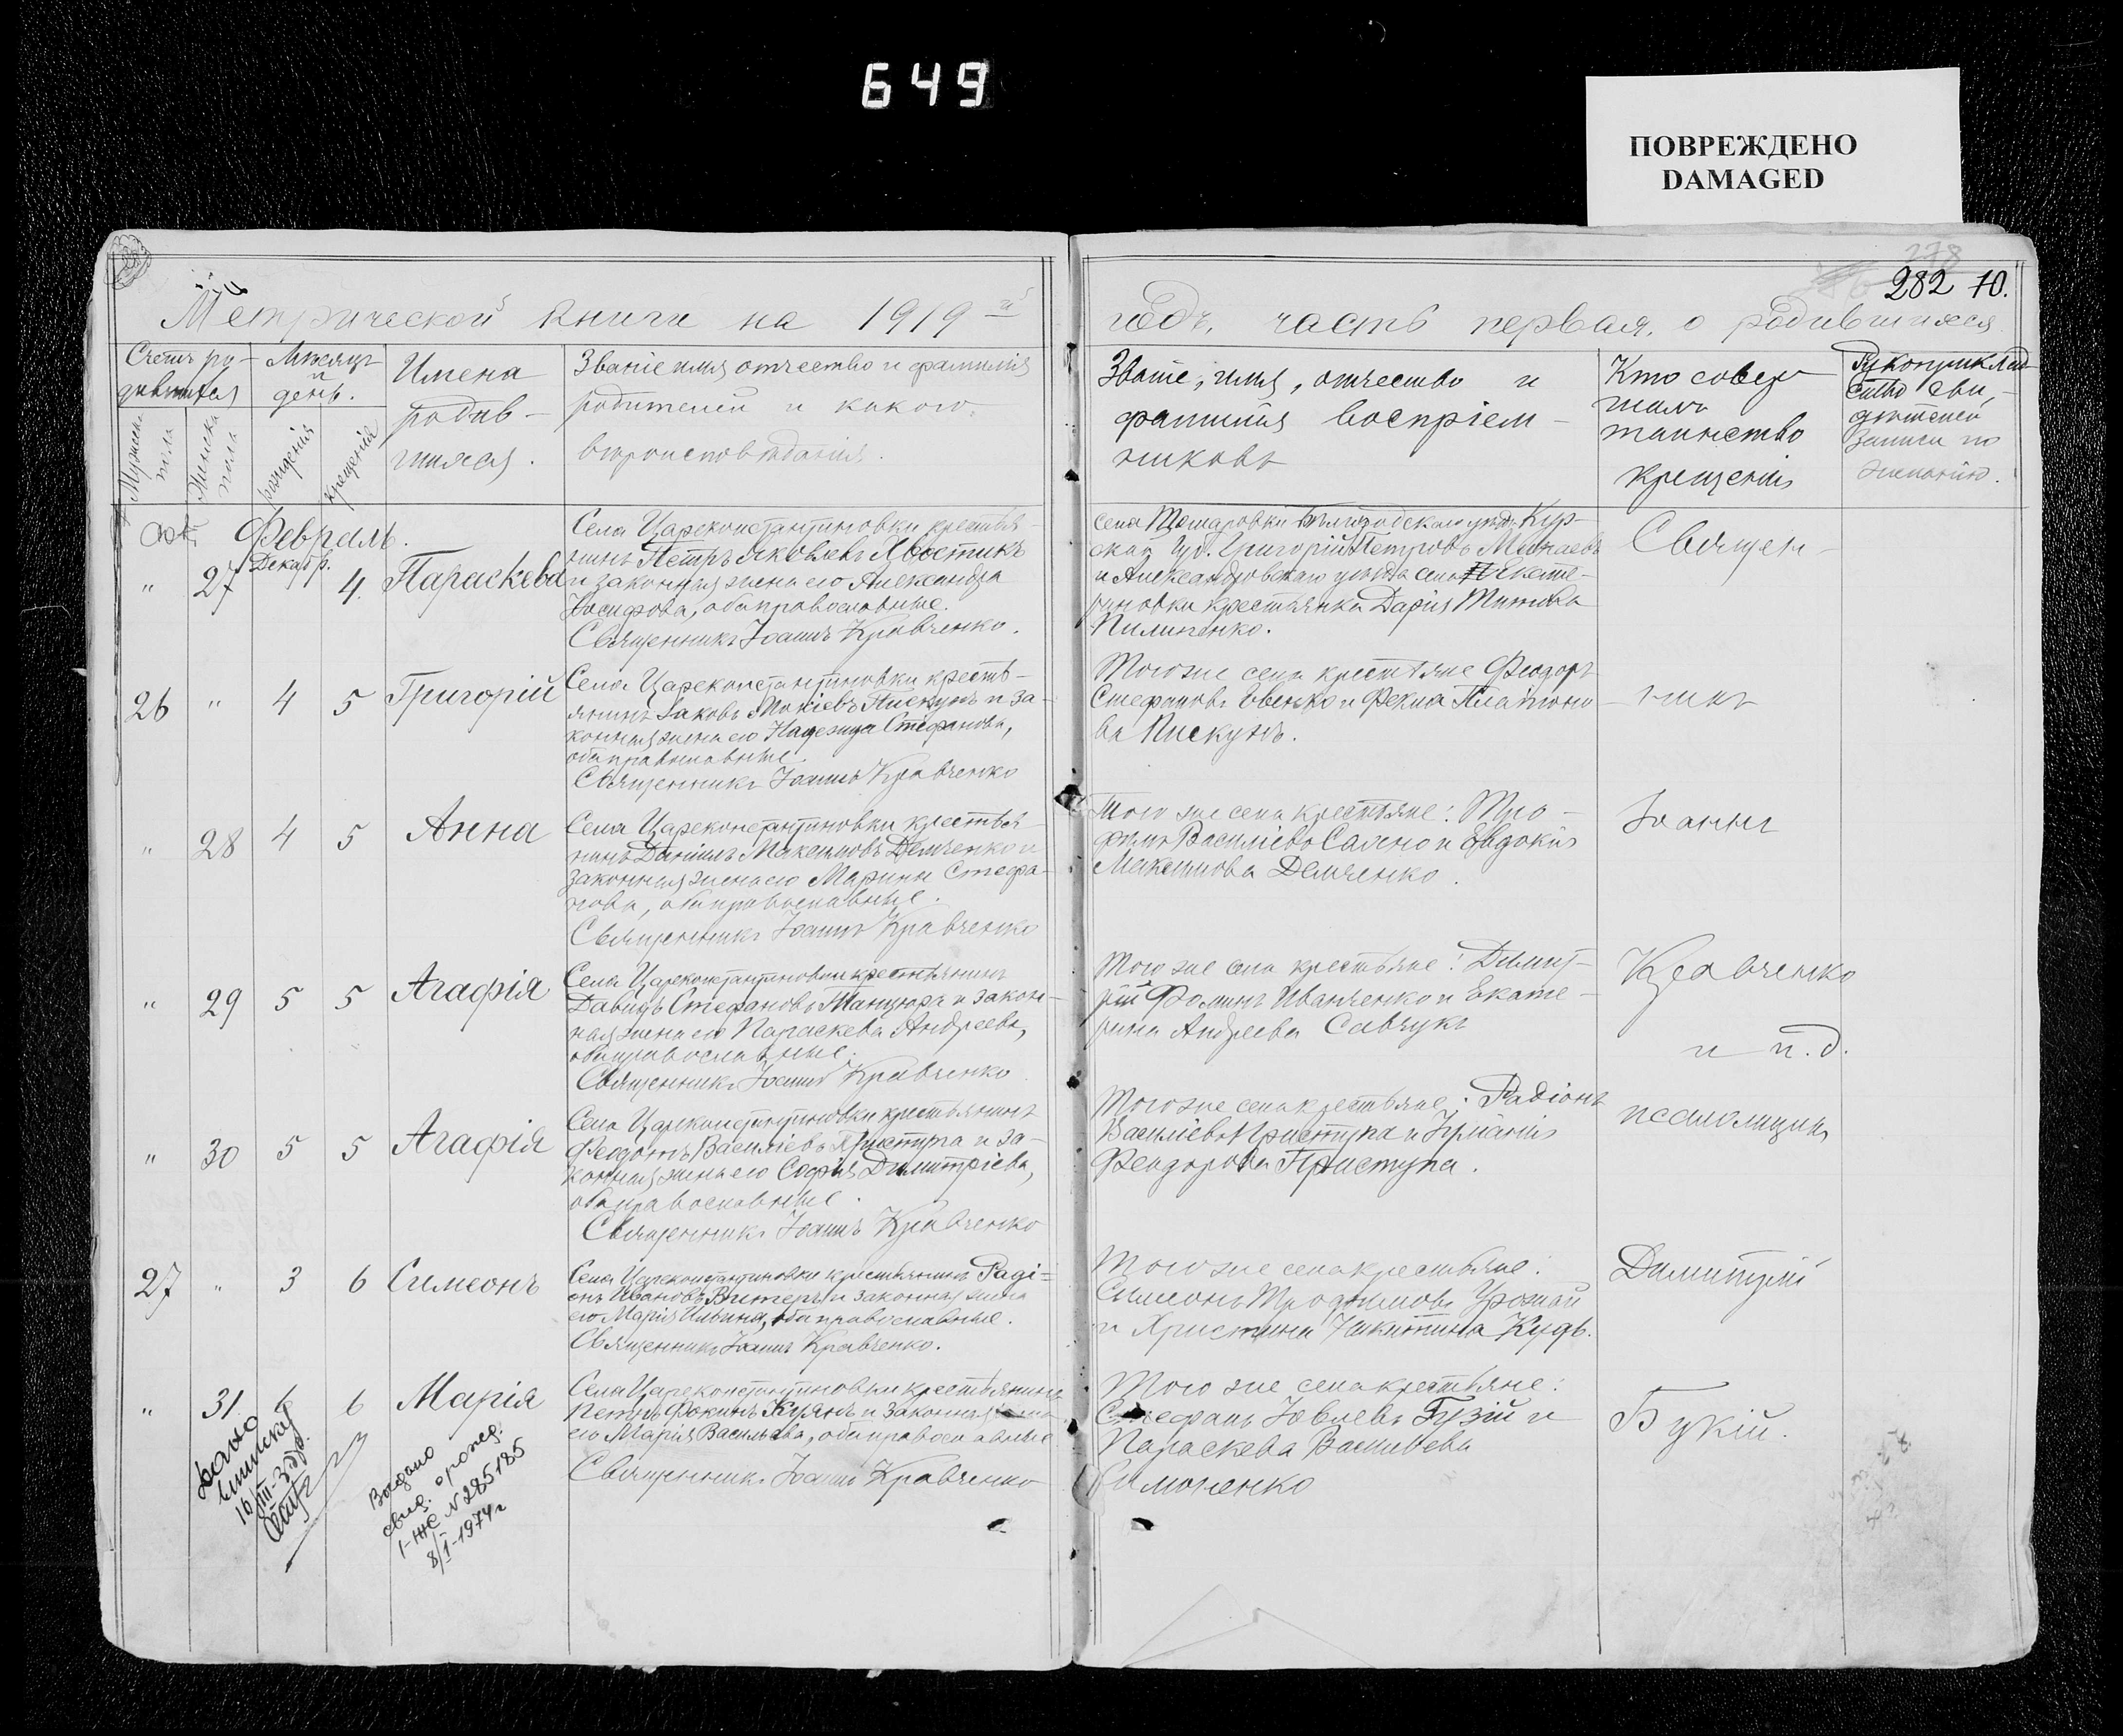 649
ПОВРЕЖДЕНО
DAMAGED
278
282 10.
Метрической книги на 1919 й
годъ, часть первая, о родившихся
Счетъ ро-
дившихся
Мужеска
пола
Женска
пола
Мѣсяцъ
и
день.
рожденія
крещенія
Имена
родив-
шихся.
Званіе имя отчество и фамилія
родителей и какого
вѣроисповѣданія.
Званіе, имя, отчество и
фамилія воспріем-
никовъ
Кто совер-
шалъ
таинство
крещенія
Рукоприклад-
ство сви-
дѣтелей
записи по
желанію.
Февраль.
Декабр.
" 27 4. Параскева
Села Цареконстантиновки крестья-
нинъ Петръ Яковлевъ Хвостикъ
и законная жена его Александра
Іосифова, оба православные.
Священникъ Іоаннъ Кравченко.
села Бѣлгородскаго уѣзд. Кур-
ской губ. Григорій Петровъ Минаевъ
и Александровскаго уѣзда села Екате-
риновки крестьянка Дарія Титова
Пилипенко.
26 " 4 5 Григорій
Села Цареконстантиновки кресть-
янинъ Іаковъ Пискунъ и за-
конная жена его Надежда Стефанова,
оба православные.
Священникъ Іоаннъ Кравченко
Того же села крестьяне Феодоръ
Стефановъ Евенко и Фекла Платоно-
ва Пискунъ.
" 28 4 5 Анна
Села Цареконстантиновки крестья-
нинъ Даніилъ Максимовъ Демченко и
законная жена его Марина Стефа-
нова, оба православные.
Священникъ Іоаннъ Кравченко
Того же села крестьяне: Тро-
фимъ Василіевъ Сахно и Евдокія
Максимова Демченко.
" 29 5 5 Агафія
Села Цареконстантиновки крестьянинъ
Давидъ Стефановъ Танцюра и закон-
ная жена его Параскева Андреева,
оба православные.
Священникъ Іоаннъ Кравченко
Того же села крестьяне: Димит-
рій Фоминъ Иванченко и Екате-
рина Андреева Савчукъ
" 30 5 5 Агафія
Села Цареконстантиновки крестьянинъ
Феодотъ Василіевъ Приступа и за-
конная жена его Софія Димитріева,
оба православные.
Священникъ Іоаннъ Кравченко
Того же села крестьяне: Радіонъ
Василіевъ Приступа и Іуліанія
Феодорова Приступа.
27 " 3 6 Симеонъ
Села Цареконстантиновки крестьянинъ Раді-
онъ Ивановъ Витеръ и законная жена
его Марія Ильина, оба православные.
Священникъ Іоаннъ Кравченко.
Того же села крестьяне:
Симеонъ Трофимовъ Урожай
и Христина Никитина Кудь.
" 31 6 6 Марія
Села Цареконстантиновки крестьянинъ
Петръ Фокинъ Куянъ и законная жена
его Марія Васильева, оба православные
Священникъ Іоаннъ Кравченко
Того же села крестьяне:
Стефанъ Іовлевъ Гузій и
Параскева Васильева
Симоненко
Священ-
никъ
Іоаннъ
Кравченко
и и.д.
псаломщика
Димитрій
Букій.
Дано
выписка
16/VIII-32р.
Выдано
свид. о рожд.
I-ЖС № 285185
8/I-1974г